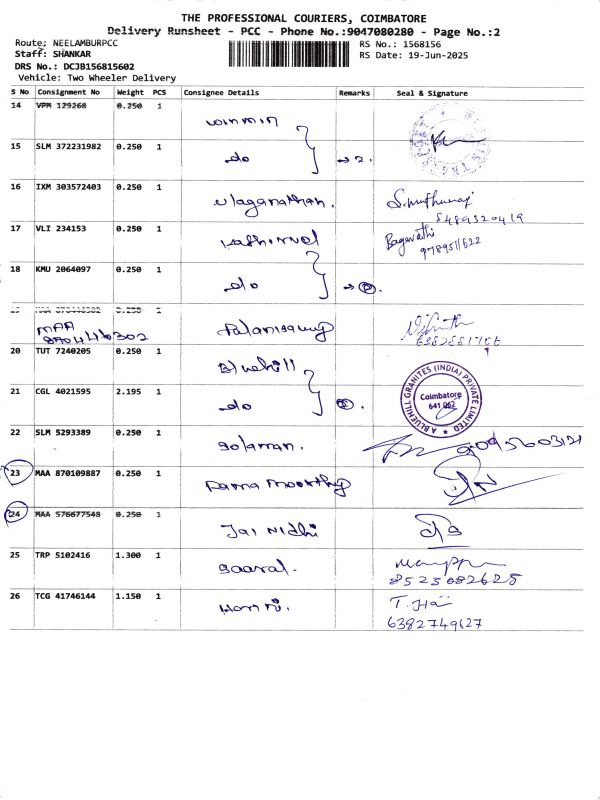 THE PROFESSIONAL COURIERS, COIMBATORE
Delivery Runsheet - PCC - Phone No.:9047080280 - Page No.:2
Route: NEELAMBURPCC
RS No.: 1568156
Staff: SHANKAR
RS Date: 19-Jun-2025
DRS No.: DCJB156815602
Vehicle: Two Wheeler Delivery
S No Consignment No Weight PCS Consignee Details Remarks Seal & Signature
14 VPM 129268 0.250 1
15 SLM 372231982 0.250 1 do → 2.
16 IXM 303572403 0.250 1 Ulaganathan. S.muthuraj
8489320419
17 VLI 234153 0.250 1 Kathirvel Bagavathi
9789511622
18 KMU 2064097 0.250 1 do → 2.
19 MAA 0.250 1
MAA Palanisamy
20 TUT 7240205 0.250 1 Bluehill
21 CGL 4021595 2.195 1 do 2.
A BLUEHILL GRANITES (INDIA) PRIVATE LIMITED
Coimbatore
641 062
22 SLM 5293389 0.250 1 Solaman.
23 MAA 870109887 0.250 1 Rama Moorthy
24 MAA 576677548 0.250 1 Jai Nidhi
25 TRP 5102416 1.300 1 Saaral.
8525082625
26 TCG 41746144 1.150 1 Hari. T. Hari
6382749627